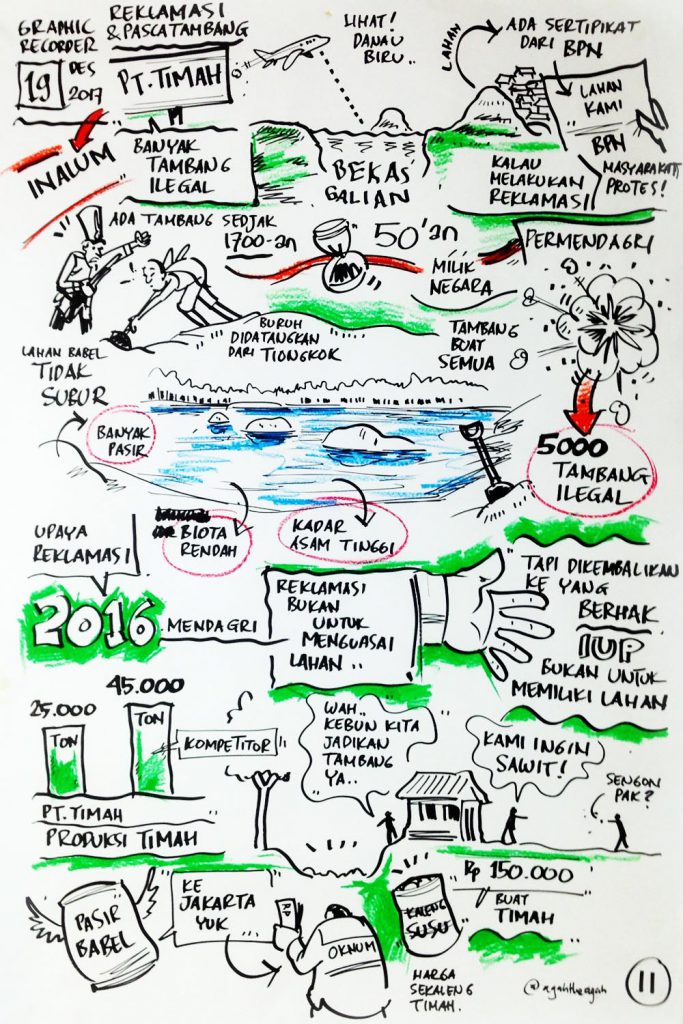 GRAPHIC
RECORDER
19 DES
2017
REKLAMASI
& PASCATAMBANG
PT. TIMAH
INALUM
BANYAK
TAMBANG
ILEGAL
LIHAT!
DANAU
BIRU..
BEKAS
GALIAN
LAHAN
ADA SERTIPIKAT
DARI BPN
LAHAN
KAMI
BPN
KALAU
MELAKUKAN
REKLAMASI
MASYARAKAT
PROTES!
ADA TAMBANG SEDJAK
1700-an
50'an
MILIK
NEGARA
PERMENDAGRI
BURUH
DIDATANGKAN
DARI TIONGKOK
TAMBANG
BUAT
SEMUA
LAHAN BABEL
TIDAK
SUBUR
BANYAK
PASIR
5000
TAMBANG
ILEGAL
BIOTA
RENDAH
KADAR
ASAM TINGGI
UPAYA
REKLAMASI
2016
MENDAGRI
REKLAMASI
BUKAN
UNTUK
MENGUASAI
LAHAN ..
TAPI DIKEMBALIKAN
KE YANG
BERHAK
IUP
BUKAN UNTUK
MEMILIKI LAHAN
25.000
TON
45.000
TON
KOMPETITOR
PT. TIMAH
PRODUKSI TIMAH
WAH..
KEBUN KITA
JADIKAN
TAMBANG
YA..
KAMI INGIN
SAWIT!
SENGON
PAK?
PASIR
BABEL
KE
JAKARTA
YUK
OKNUM
KALENG
SUSU
Rp 150.000
BUAT
TIMAH
HARGA
SEKALENG
TIMAH.
11